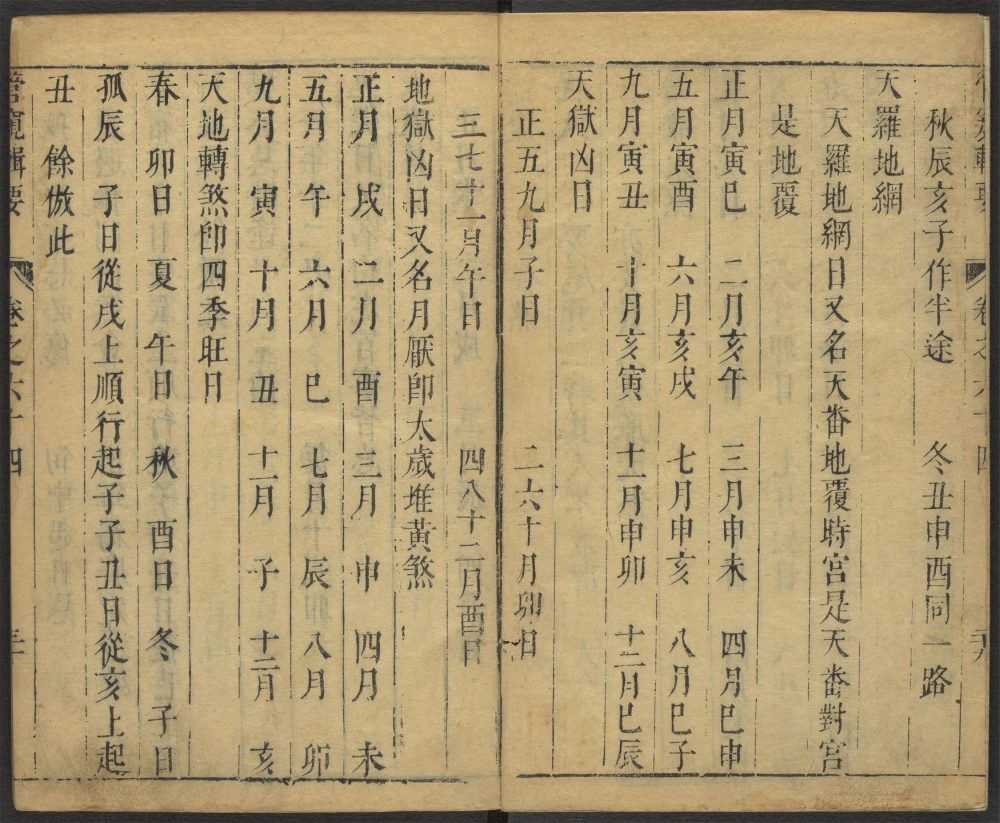 卷之六十四
秋辰亥子作半途 冬丑申酉同一路
天羅地網
天羅地網日又名天番地覆時宮是天番對宮
是地覆
正月寅巳 二月亥午 三月申未 四月巳申
五月寅酉 六月亥戌 七月申亥 八月巳子
九月寅丑 十月亥寅 十一月申卯 十二月巳辰
天獄凶日
正五九月子日 二六十月卯日
三七十一月午日 四八十二月酉日
地獄凶日又名月厭卽太歲堆黃煞
正月 戌 二月 酉 三月 申 四月 未
五月 午 六月 巳 七月 辰 八月 卯
九月 寅 十月 丑 十一月 子 十二月 亥
天地轉煞卽四季旺日
春 卯日 夏 午日 秋 酉日 冬 子日
孤辰 子日從戌上順行起子子丑日從亥上起
丑 餘倣此
管窺輯要 卷之六十四